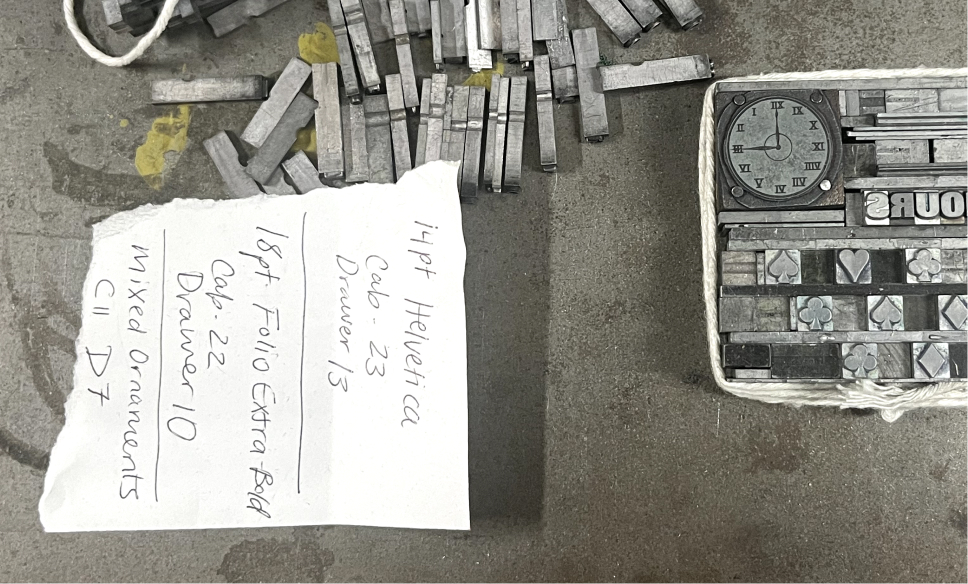 14pt Helvetica
Cab. 23
Drawer 13
18pt Folio Extra-Bold
Cab. 22
Drawer 10
Mixed Ornaments
C11 D7
OURS
XII
XI
X
IX
VIII
VII
VI
V
IIII
III
II
I